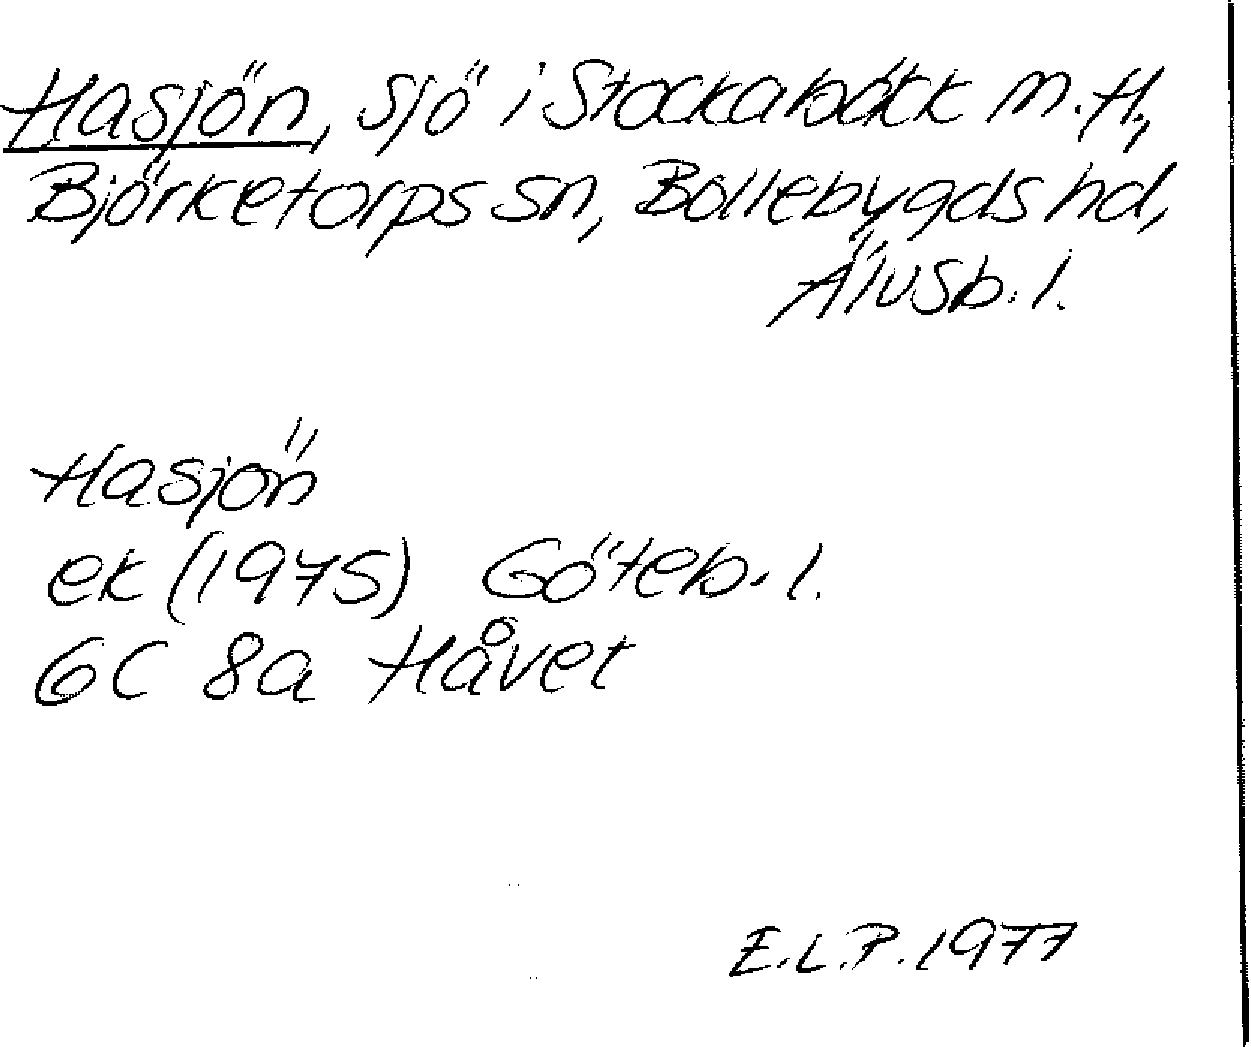 Hasjön, sjö i Stockabäck m.fl.,
Björketorps sn, Bollebygds hd,
Älvsb. l.
Hasjön
ek (1975) Göteb. l.
6C 8a Håvet
E.L.P. 1977